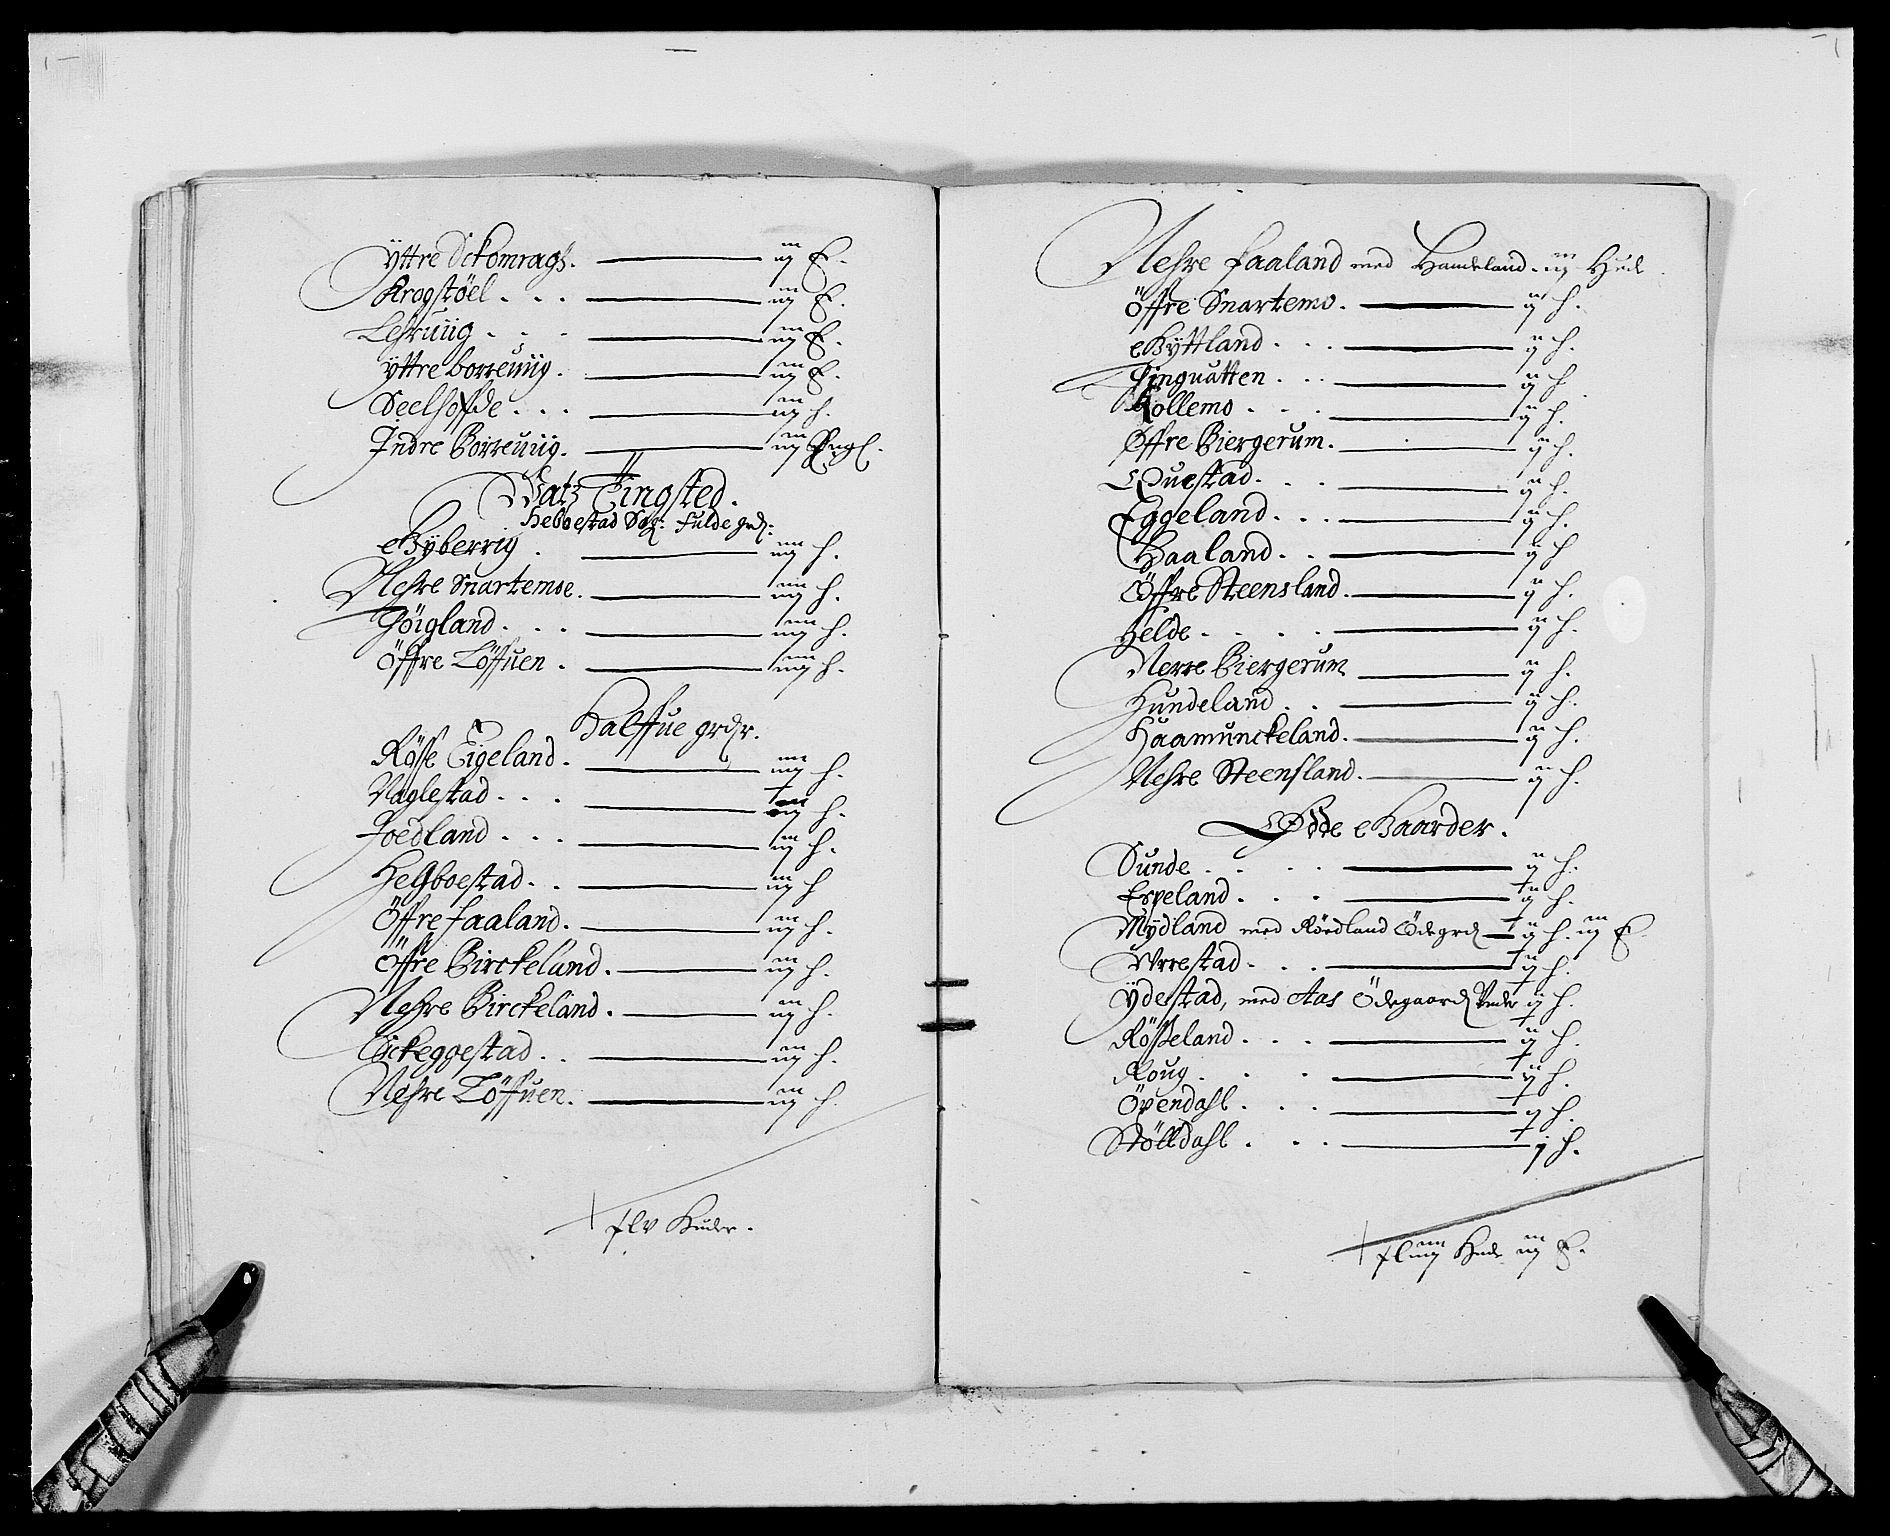 Ÿttre Öckomrags. iij E.
Krogstöel . . . iij E.
Lehruiig . . . iij E.
Ÿttre borreuiig. iij E.
Seelhofde . . . iij h.
Indre Borreuiig. iij Engl.
Vatz Tingsted.
Hebboestad Sog: Fulde grd:
Gÿberrig . iiij h.
Nehre Snartemoe. iiij h.
Höigland . . . iiij h.
Öffre Löffuen . iiij h.
Halffue grdr.
Rösse Eigeland . iiij h.
Naglestad . . . iij h.
Joedland . . . iij h.
Hegboestad . . iij h
Öffre faaland. iij h.
Öffre Birckeland. iij h.
Nehre Birckeland. iij h.
Eickeggestad . . iij h.
Nehre Löffuen. iij h.
xlv Huder.
Nehre faaland med Handeland. iij Hud
Öffre Snartemo. ij h.
Gÿttland . . . ij h.
Tinguatten . . . ij h
Kollemo . . . ij h.
Øffre Biergerum. ij h.
Questad . . . ij h.
Eggeland . . . ij h.
Haaland . . ij h
Öffre Steensland. ij h.
Helde . . . . ij h.
Nerre Biergerum ij h.
Hundeland . . ij h.
Haamunckeland. ij h.
Nehre Steensland. ij h.
Ødde Gaarder.
Sunde . . . . ij h.
Erpeland . . . ij h.
Mÿdland med Röedland Ödegrd ij h. iij E.
Vrrestad . . . ij h.
Ÿdestad, med Aas Ödegaard Under ij h.
Rösseland . . . ij h.
Roug . . . ij h.
Öpendahl . . . ij h.
Stölldahl . . . j h.
xliiij Hud iij E.